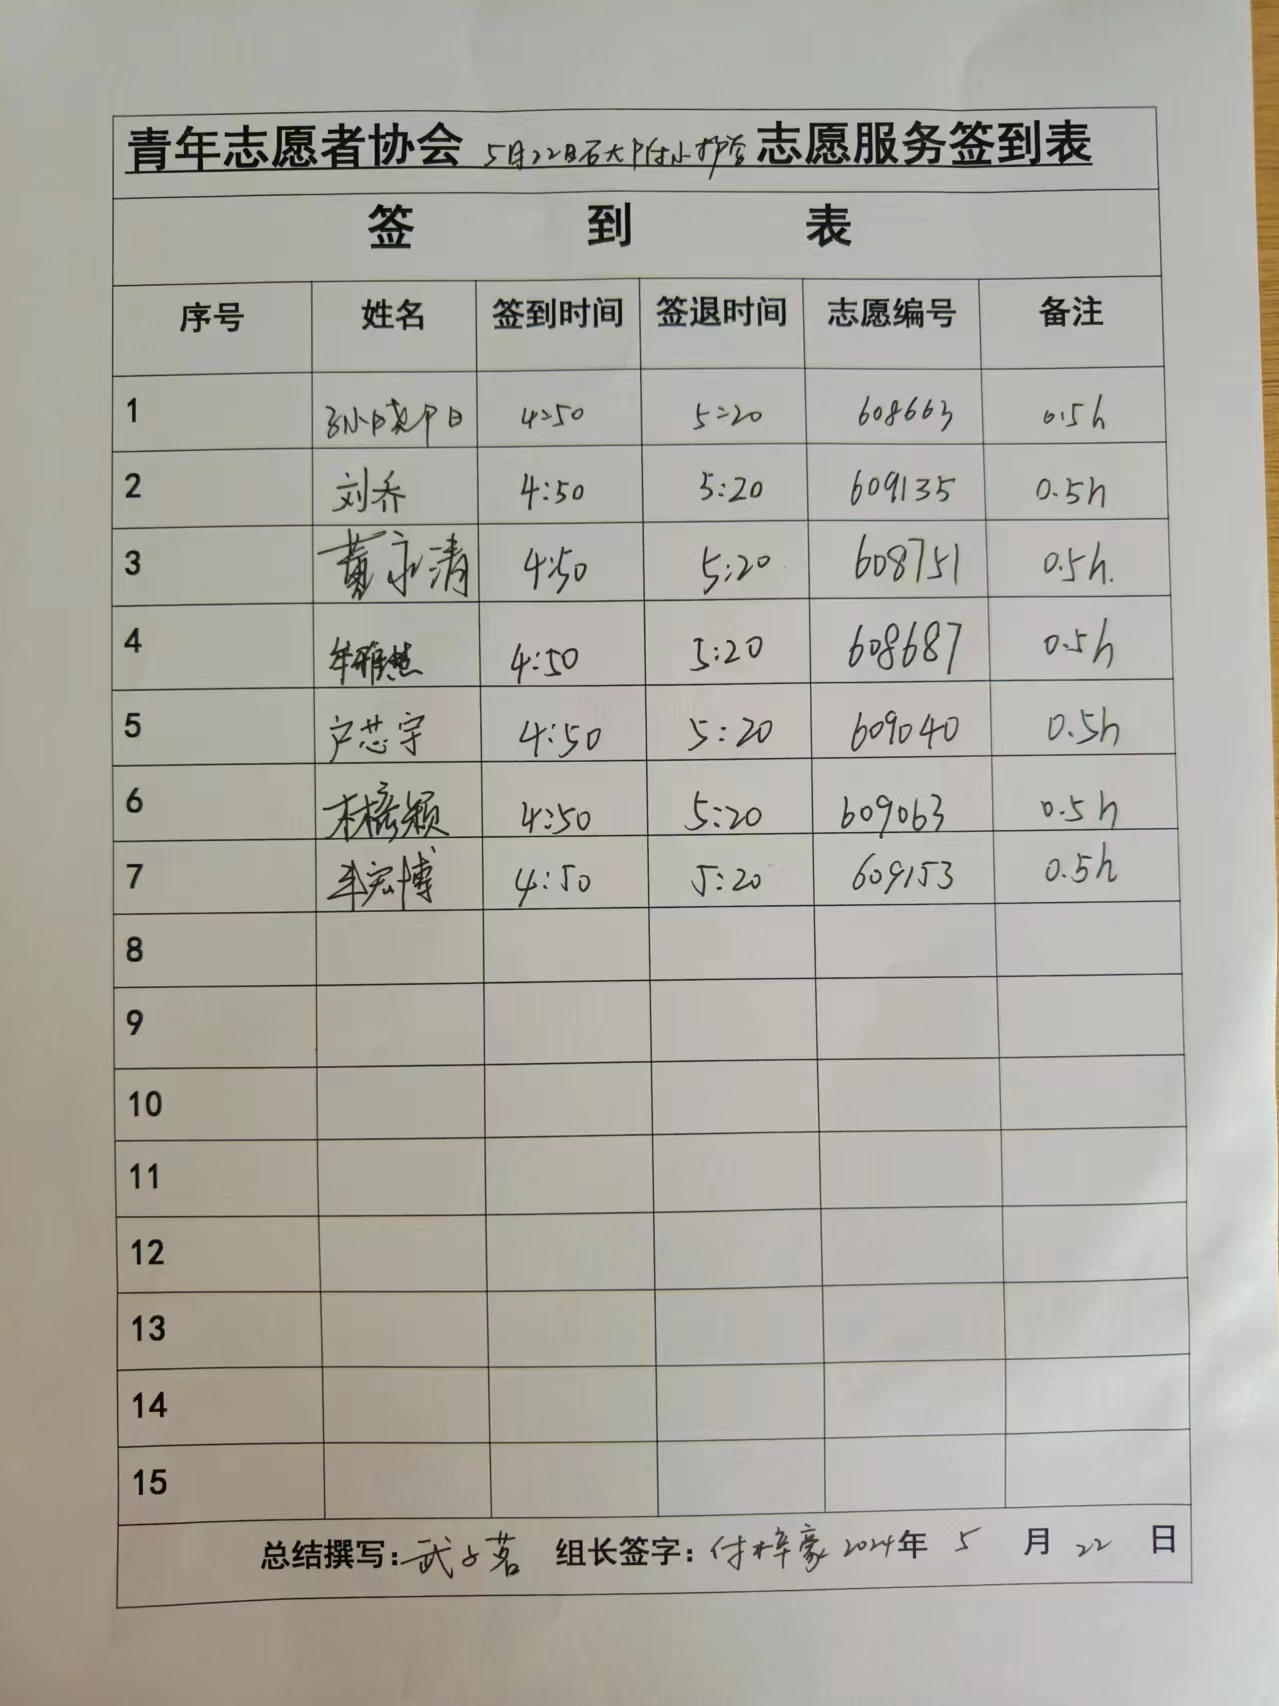 青年志愿者协会 5月22日石大附小护学 志愿服务签到表
签 到 表
序号 姓名 签到时间 签退时间 志愿编号 备注
1 孙晓阳 4:50 5:20 608663 0.5h
2 刘乔 4:50 5:20 609135 0.5h
3 黄永清 4:50 5:20 608751 0.5h.
4 牟雅慧 4:50 5:20 608687 0.5h
5 卢芯宇 4:50 5:20 609040 0.5h
6 颖 4:50 5:20 609063 0.5h
7 牟宏博 4:50 5:20 609153 0.5h
8
9
10
11
12
13
14
15
总结撰写：武子茗 组长签字：付梓豪 2024年 5 月 22 日